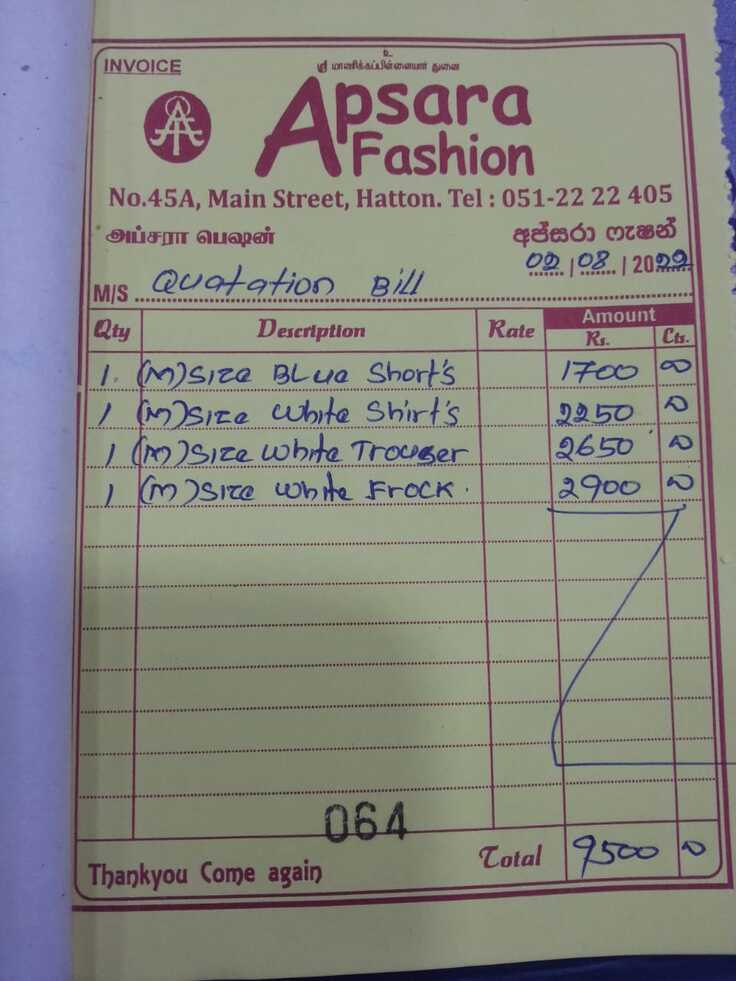 INVOICE
உ
ஸ்ரீ மாணிக்கப்பிள்ளையார் துணை
Apsara
Fashion
No.45A, Main Street, Hatton. Tel : 051-22 22 405
அப்சரா பெஷன்
අප්සරා ෆැෂන්
02 / 08 / 2022
M/S Quatation Bill
Qty Description Rate Amount
Rs. Cts.
1. (M) Size Blue Short's 1700 00
1 (M) Size White Shirt's 2250 00
1 (M) Size White Trouser 2650 00
1 (M) Size White Frock. 2900 00
064
Thankyou Come again
Total 9500 00